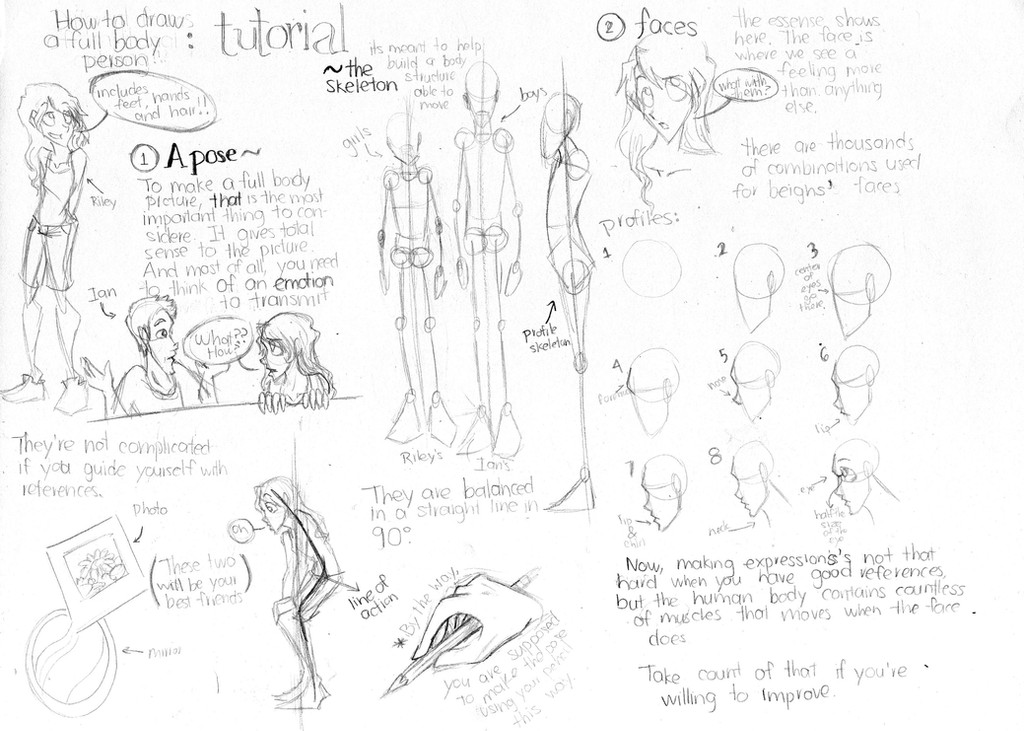 How to draw
a full body
person!!
: tutorial
includes
feet, hands
and hair!!
Riley
1 A pose~
To make a full body
picture, that is the most
important thing to con-
sidere. It gives total
sense to the picture.
And most of all, you need
to think of an emotion
to transmit
Ian
What??
How?:
They're not complicated
if you guide yourself with
references.
photo
(These two
will be your
best friends)
mirror
oh
line of
action
~the
skeleton
its meant to help
build a body
structure
able to
move
girls
boys
profile
skeleton
Riley's
Ian's
They are balanced
in a straight line in
90°
*By the way,
you are supposed
to make the pose
using your pencil
this way.
2 faces
the essense shows
here. The face is
where we see a
feeling more
than anything
else.
what with
them?
there are thousands
of combinations used
for beighs' faces
profiles:
1
2
3
center
of
eyes
go
there
4
5
nose
6
lip
7
lip
&
chin
8
neck
9
eye
half the
size
of the
eye
Now, making expressions's not that
hard when you have good references,
but the human body contains countless
of muscles that moves when the face
does
Take count of that if you're
willing to improve.